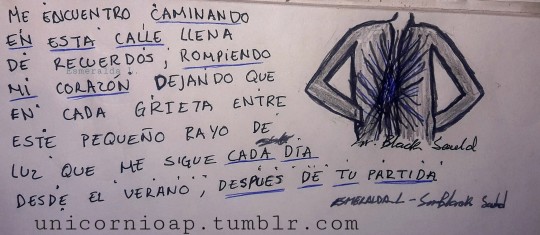 ME ENCUENTRO CAMINANDO
EN ESTA CALLE LLENA
DE RECUERDOS, ROMPIENDO
MI CORAZON DEJANDO QUE
EN CADA GRIETA ENTRE
ESTE PEQUEÑO RAYO DE
LUZ QUE ME SIGUE CADA DÍA
DESDE EL VERANO, DESPUES DE TU PARTIDA
Black
ESMERALDA L -
unicornioap.tumblr.com